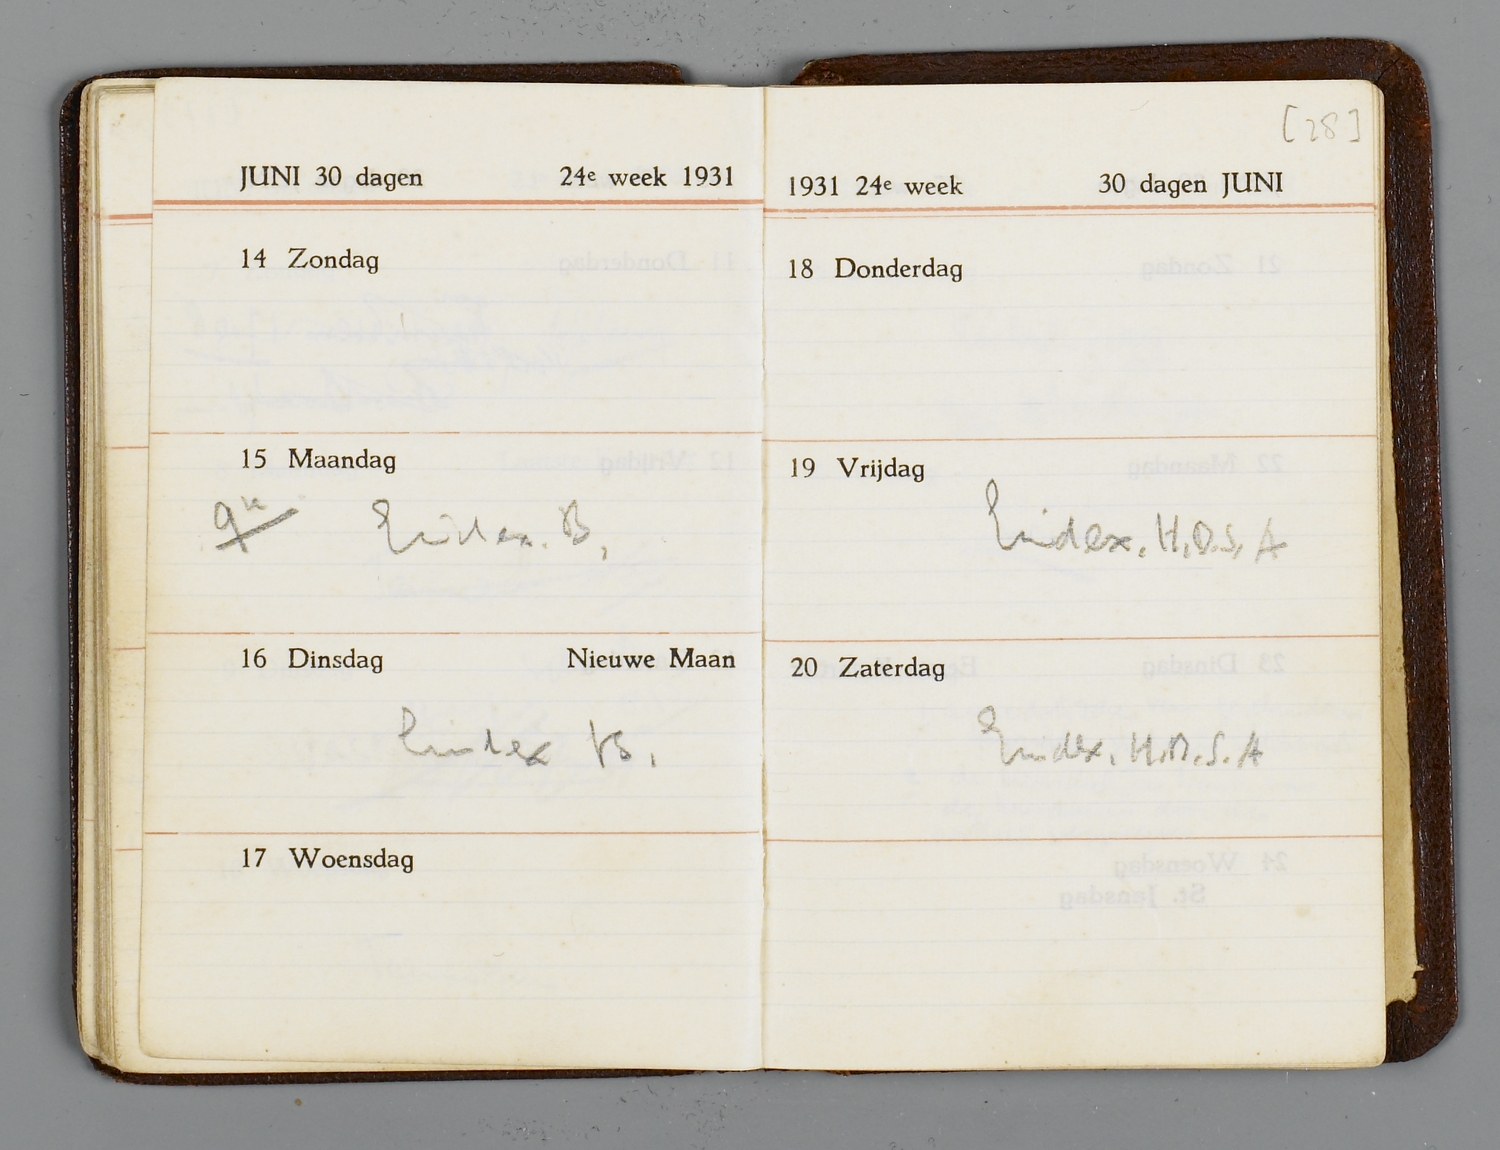 JUNI 30 dagen 24e week 1931
14 Zondag
15 Maandag
9u Eindex. B.
16 Dinsdag Nieuwe Maan
Eindex B.
17 Woensdag
[28]
1931 24e week 30 dagen JUNI
18 Donderdag
19 Vrijdag
Eindex. H.B.S. A
20 Zaterdag
Eindex. H.B.S. A